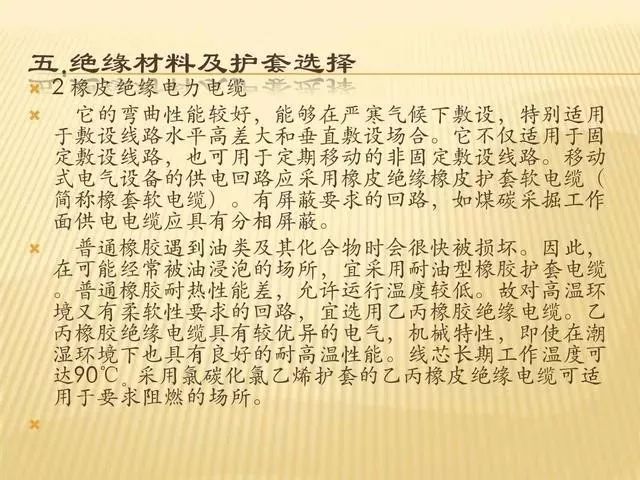 五.绝缘材料及护套选择
2橡皮绝缘电力电缆
它的弯曲性能较好，能够在严寒气候下敷设，特别适用
于敷设线路水平高差大和垂直敷设场合。它不仅适用于固
定敷设线路，也可用于定期移动的非固定敷设线路。移动
式电气设备的供电回路应采用橡皮绝缘橡皮护套软电缆（
简称橡套软电缆）。有屏蔽要求的回路，如煤碳采掘工作
面供电电缆应具有分相屏蔽。
普通橡胶遇到油类及其化合物时会很快被损坏。因此，
在可能经常被油浸泡的场所，宜采用耐油型橡胶护套电缆
。普通橡胶耐热性能差，允许运行温度较低。故对高温环
境又有柔软性要求的回路，宜选用乙丙橡胶绝缘电缆。乙
丙橡胶绝缘电缆具有较优异的电气，机械特性，即使在潮
湿环境下也具有良好的耐高温性能。线芯长期工作温度可
达90℃。采用氯碳化氯乙烯护套的乙丙橡皮绝缘电缆可适
用于要求阻燃的场所。